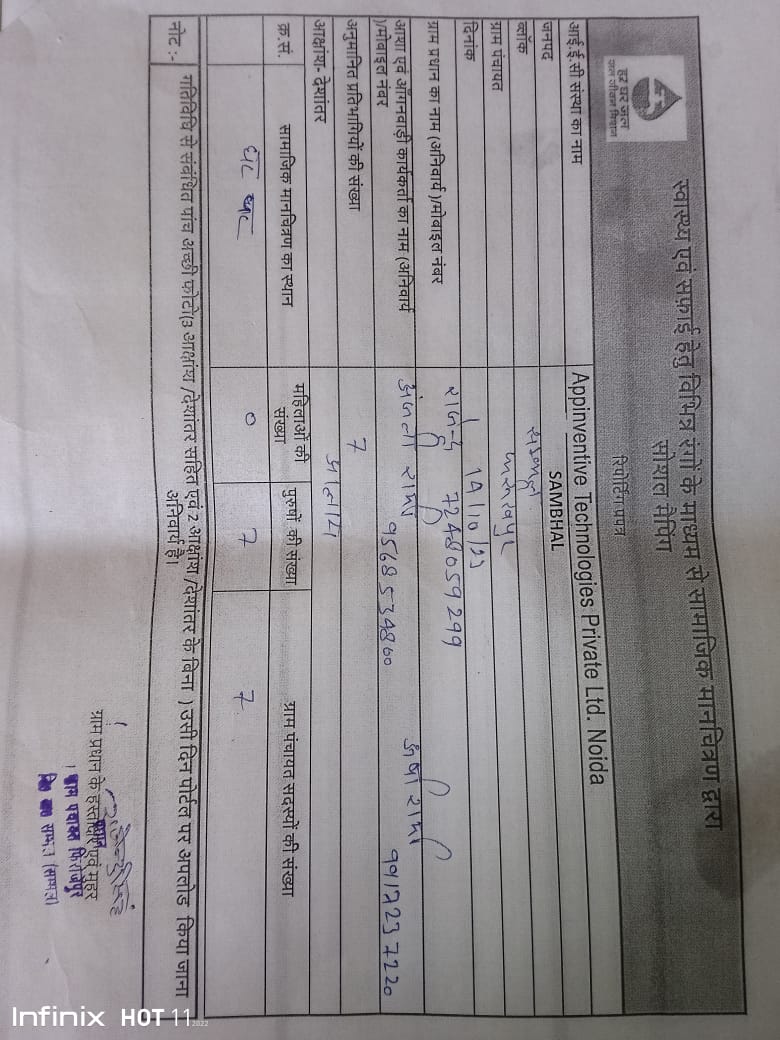 हर घर जल
जल जीवन मिशन
स्वास्थ्य एवं सफ़ाई हेतु विभिन्न रंगों के माध्यम से सामाजिक मानचित्रण द्वारा
सोशल मैपिंग
रिपोर्टिंग प्रपत्र
आई.ई.सी संस्था का नाम Appinventive Technologies Private Ltd. Noida
जनपद SAMBHAL
ब्लॉक सम्भल
ग्राम पंचायत
दिनांक
ग्राम प्रधान का नाम (अनिवार्य )/मोबाइल नंबर 7248059299
आशा एवं आँगनवाड़ी कार्यकर्ता का नाम (अनिवार्य
)/मोबाइल नंबर 9568534860 9917237220
अनुमानित प्रतिभागियों की संख्या 7
आक्षांश- देशांतर
क्र.सं. सामाजिक मानचित्रण का स्थान महिलाओं की संख्या पुरुषों की संख्या ग्राम पंचायत सदस्यों की संख्या
0 7 7
नोट :- गतिविधि से संबंधित पांच अच्छी फोटो(3 आक्षांश /देशांतर सहित एवं 2 आक्षांश /देशांतर के बिना ) उसी दिन पोर्टल पर अपलोड किया जाना
अनिवार्य है।
ग्राम प्रधान के हस्ताक्षर एवं मुहर
Infinix HOT 11 2022